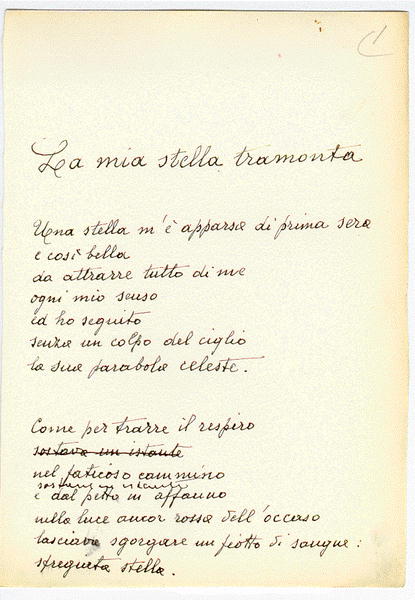 La mia stella tramonta
Una stella m'è apparsa di prima sera
e così bella
da attrarre tutto di me
ogni mio senso
ed ho seguito
senza un colpo del ciglio
la sua parabola celeste.
Come per trarre il respiro
sostava un istante
nel faticoso cammino
sostava un istante
e dal petto in affanno
nella luce ancor rossa dell'occaso
lasciava sgorgare un fiotto di sangue:
stregata stella.